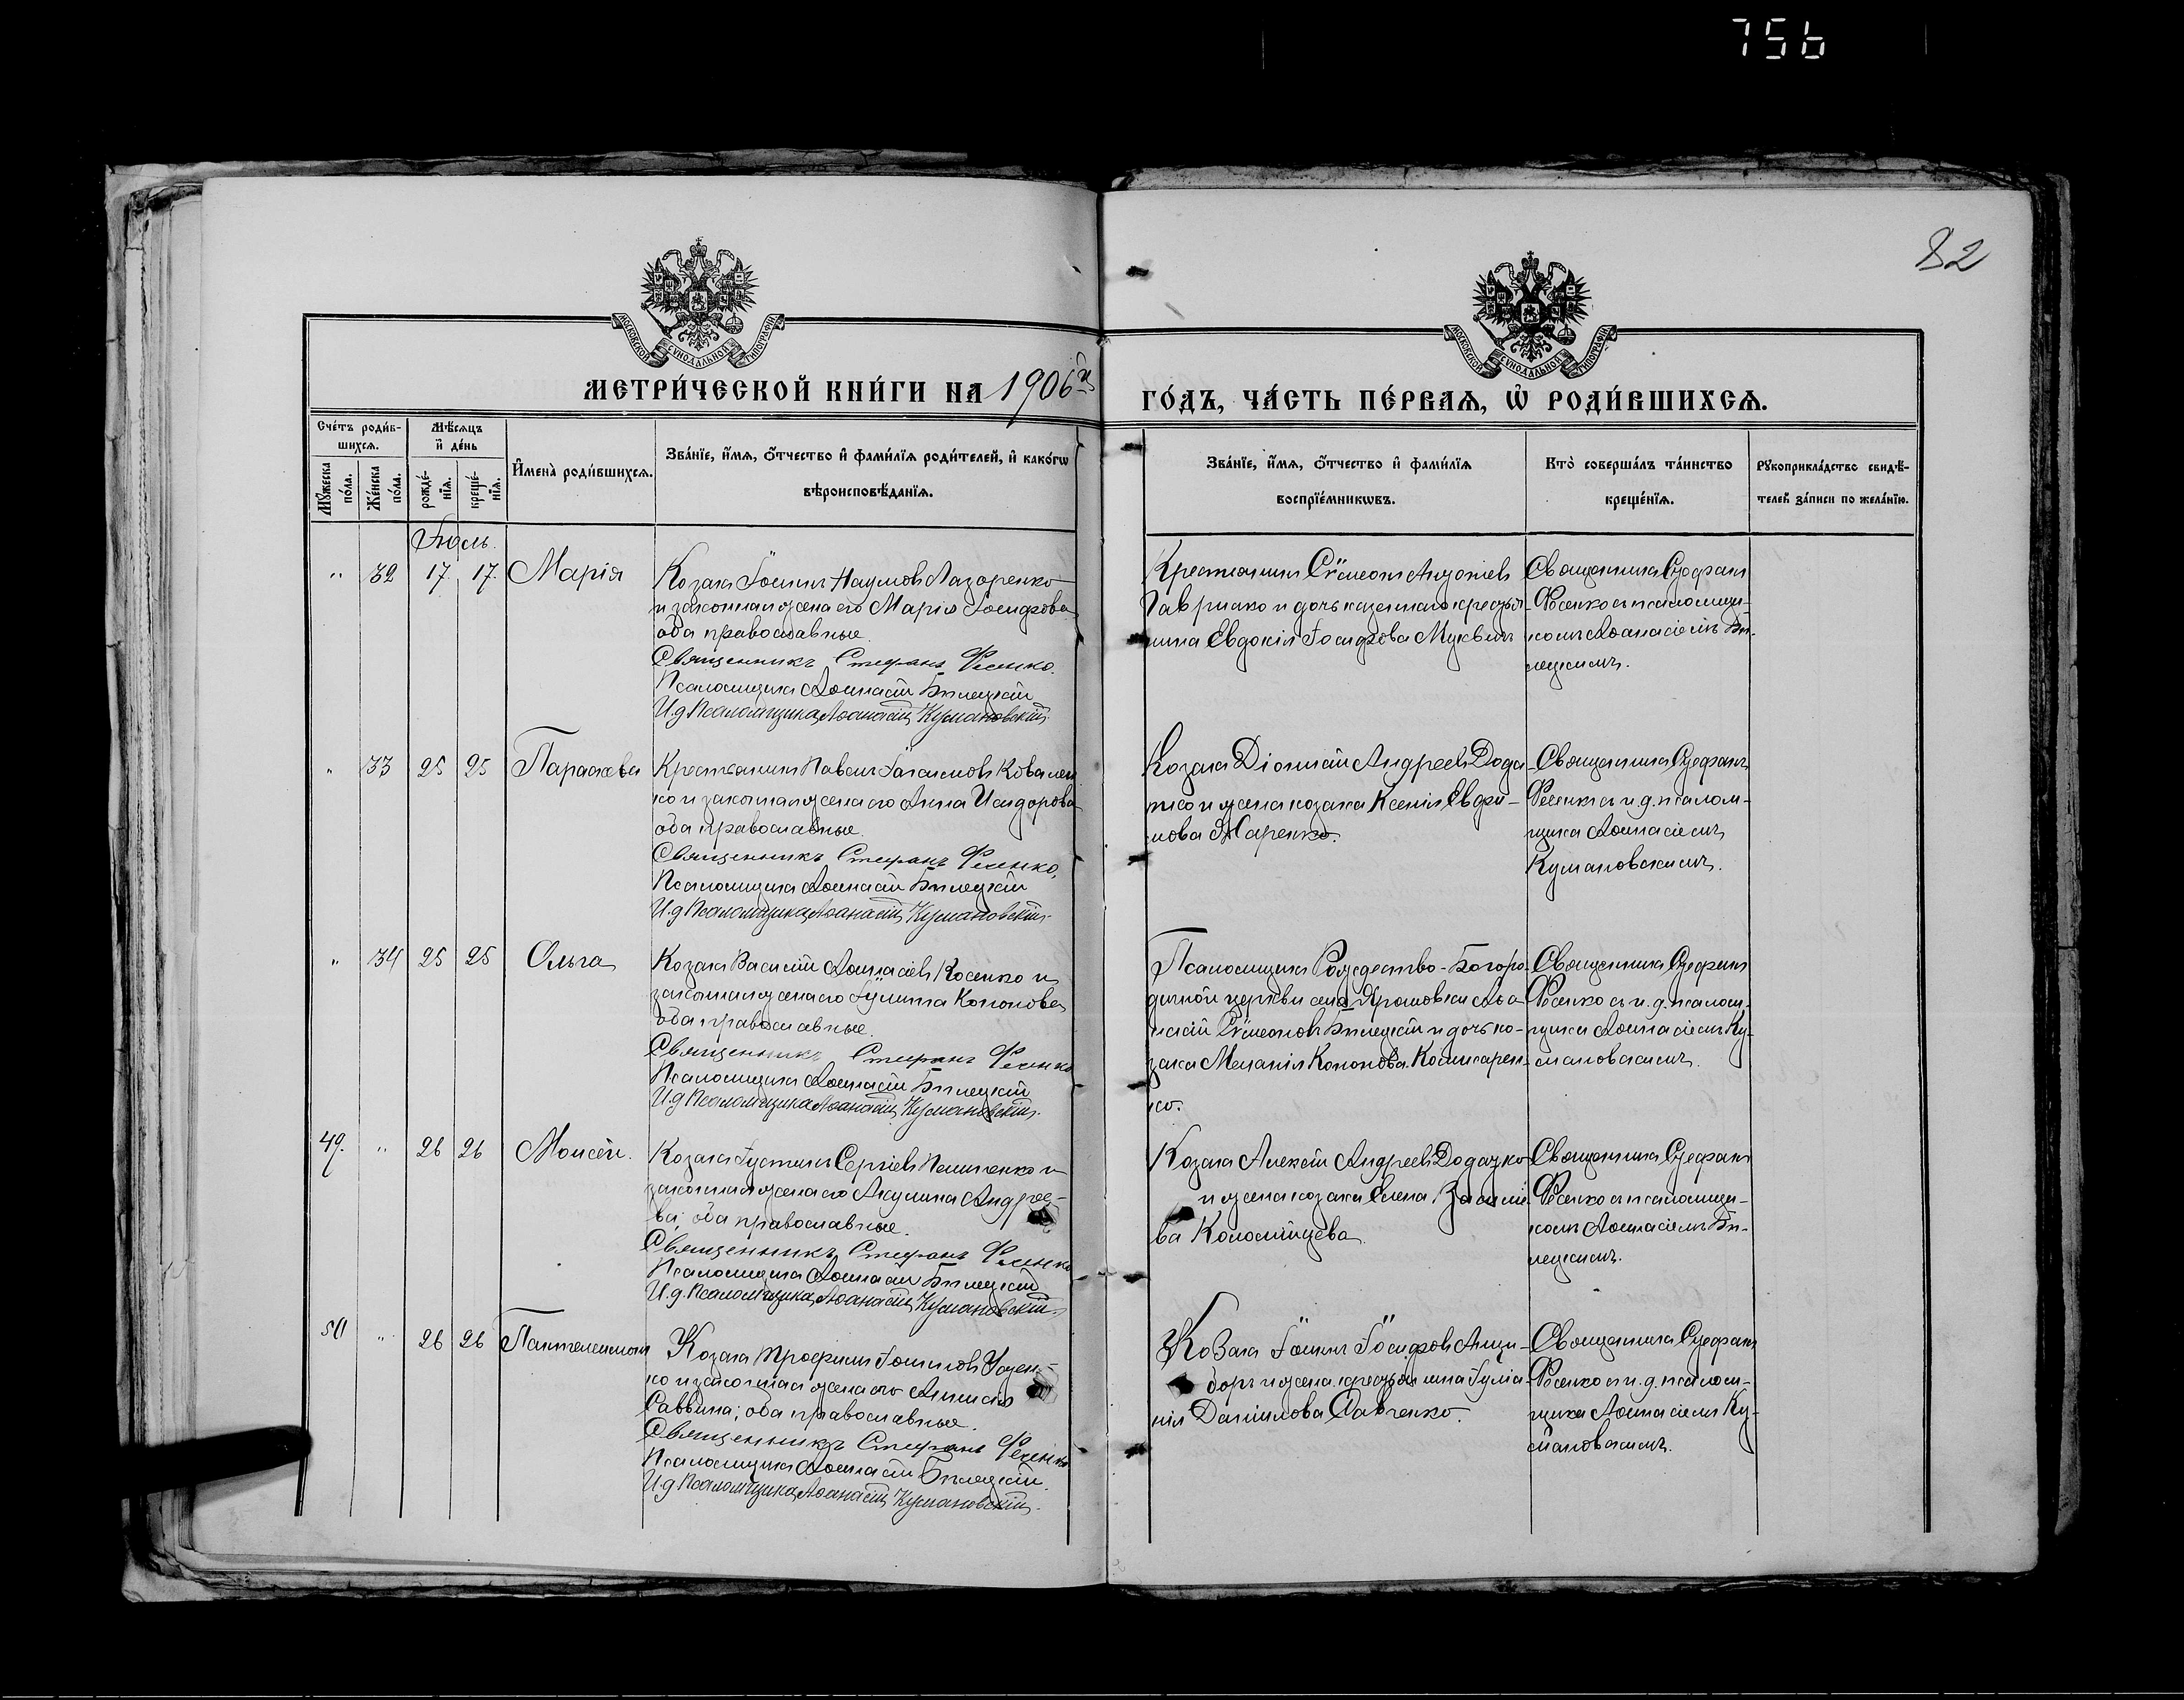 756
82
МОСКОВСКОЙ СѴНОДАЛЬНОЙ ТИПОГРАФІИ
МОСКОВСКОЙ СѴНОДАЛЬНОЙ ТИПОГРАФІИ
МЕТРИ́ЧЕСКОЙ КНИ́ГИ НА 1906й
ГО́ДЪ, ЧА́СТЬ ПЕ́РВАѦ, Ѡ҆ РОДИ́ВШИХСѦ.
Сче́тъ роди́в-
шихсѧ.
Мꙋ́жеска по́ла.
Же́нска по́ла.
Мѣ́сѧцъ
и҆ де́нь
рожде́-
нїѧ.
креще́-
нїѧ.
И҆мена̀ роди́вшихсѧ.
Зва́нїе, и҆́мѧ, ѻ҆́тчество и҆ фами́лїѧ роди́телей, и҆ како́гѡ
вѣроисповѣ́данїѧ.
Зва́нїе, и҆́мѧ, ѻ҆́тчество и҆ фами́лїѧ
воспрїе́мникѡвъ.
Кто̀ соверша́лъ та́инство
креще́нїѧ.
Рꙋкоприкла́дство свидѣ́-
телей за́писи по жела́нїю.
Іюль.
" 32 17. 17. Марія
Козакъ Іоаннъ Наумовъ Лазоренко
и законная жена его Марія Іосифова
оба православные.
Священникъ Стефанъ Фесенко.
Псаломщикъ Аѳанасій Билецкій
И.д Псаломщика Аѳанасій Кумановскій.
Крестьянинъ Сѵмеонъ Антоніевъ
Гавришко и дочь казеннаго крестья-
нина Евдокія Іосифова
Священникъ Стефанъ
Фесенко съ псаломщи-
комъ Аѳанасіемъ Би-
лецкимъ.
" 33 25 25 Параскева
Крестьянинъ Павелъ Ковален
ко и законная жена его Анна Исидорова
оба православные.
Священникъ Стефанъ Фесенко.
Псаломщикъ Аѳанасій Билецкій
И.д Псаломщика Аѳанасій Кумановскій.
Козакъ Діонисій Андреевъ Дода
тко и жена козака Ксенія Евфи-
мова Жаренко.
Священникъ Стефанъ
Фесенко съ и.д. псалом-
щика Аѳанасіемъ
Кумановскимъ.
" 34 25 25 Ольга
Козакъ Василій Аѳанасіевъ Косенко и
законная жена его Іулитта Кононова
оба православные.
Священникъ Стефанъ Фесенко
Псаломщикъ Аѳанасій Билецкій
И.д Псаломщика Аѳанасій Кумановскій.
Псаломщикъ Рождество-Богоро-
дичной церкви села Ярошовки Аѳа-
насій Сѵмеоновъ Билецкій и дочь ко-
зака Меланія Кононова Кошкарен-
ко.
Священникъ Стефанъ
Фесенко съ и.д. псалом-
щика Аѳанасіемъ Ку-
мановскимъ.
49. " 26 26 Моисей.
Козакъ Іустинъ Сергіевъ и
законная жена его Акулина Андрее-
ва; оба православные.
Священникъ Стефанъ Фесенко
Псаломщикъ Аѳанасій Билецкій
И.д. Псаломщика Аѳанасій Кумановскій.
Козакъ Алексій Андреевъ Додатко
и жена козака Елена Василіе
ва Коломійцева.
Священникъ Стефанъ
Фесенко съ псаломщи-
комъ Аѳанасіемъ Би-
лецкимъ.
50 " 26 26 Пантелеимонъ
Козакъ Трофимъ Іоанновъ Усен-
ко и законная жена его Анисія
Саввина; оба православные.
Священникъ Стефанъ Фесенко
Псаломщикъ Аѳанасій Билецкій.
И.д Псаломщика Аѳанасій Кумановскій.
Козакъ Іоаннъ Іосифовъ Анци-
боръ и жена крестьянина Іуліа-
нія Даніилова Савченко.
Священникъ Стефанъ
Фесенко съ и.д. псалом-
щика Аѳанасіемъ Ку-
мановскимъ.